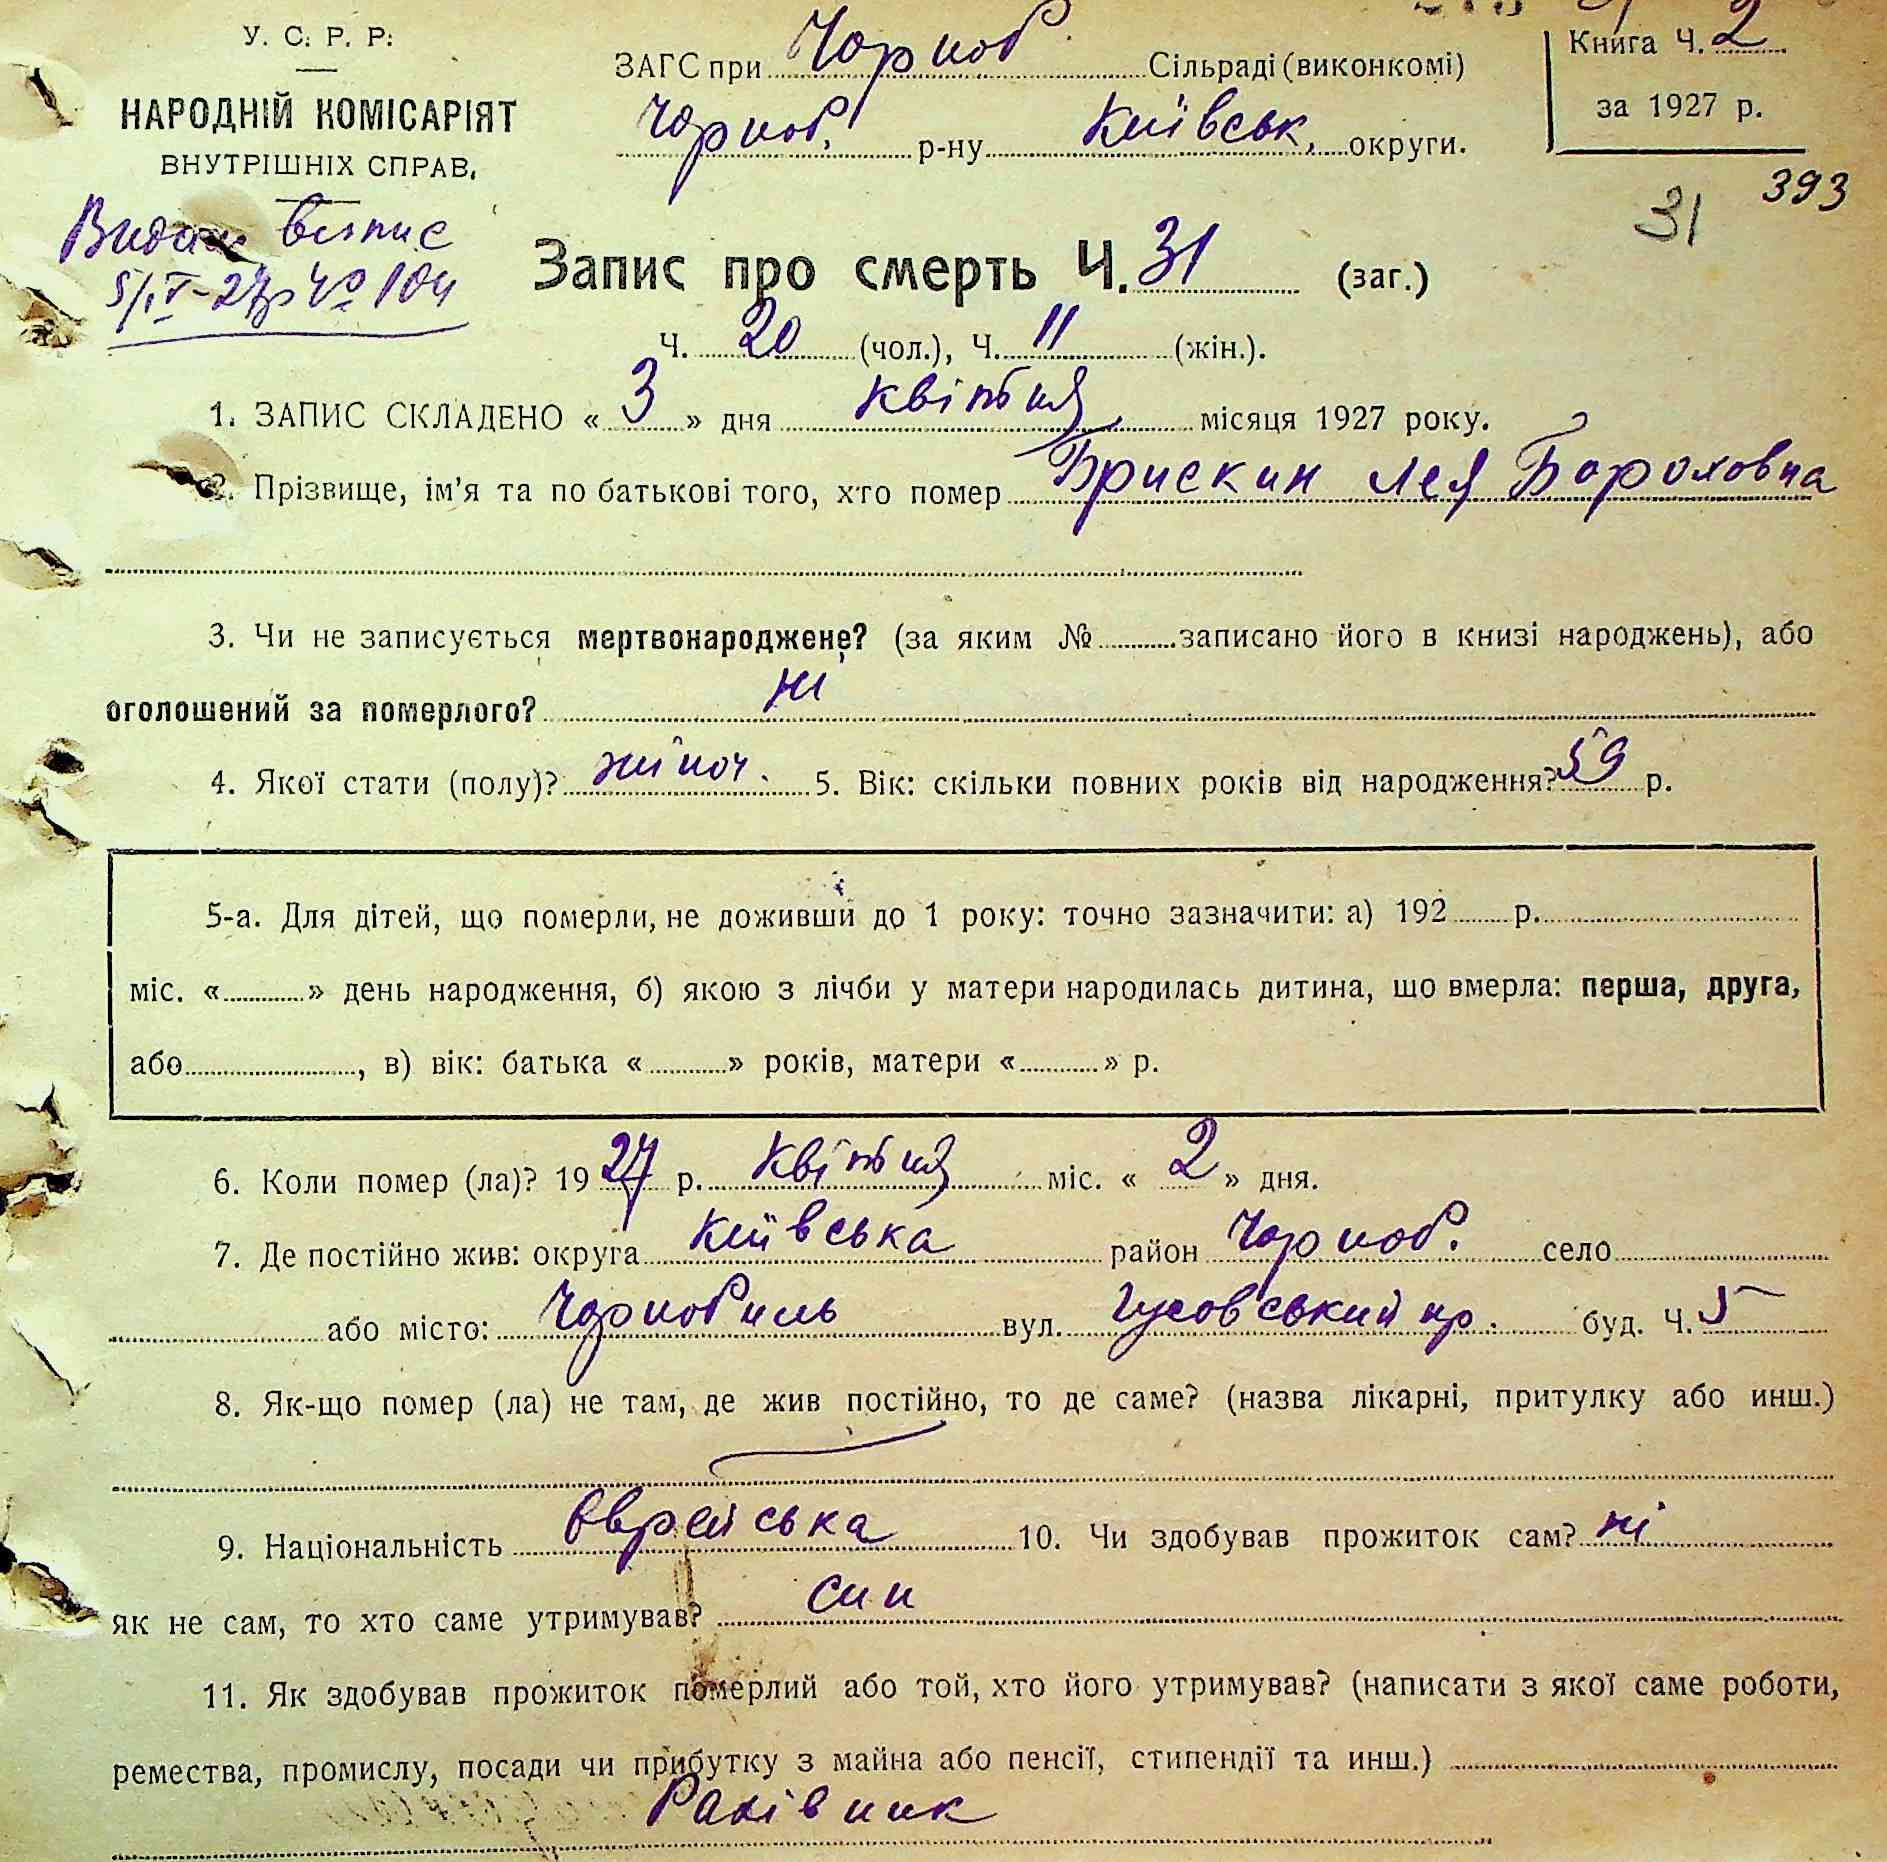 У. С. Р. Р.
НАРОДНІЙ КОМІСАРІЯТ
ВНУТРІШНІХ СПРАВ.
ЗАГС при Чорноб. Сільраді (виконкомі)
Чорноб. р-ну Київськ. округи.
Книга Ч. 2
за 1927 р.
393
31
Видан випис
5/IV-27р № 104
Запис про смерть Ч. 31 (заг.)
Ч. 20 (чол.), Ч. 11 (жін.).
1. ЗАПИС СКЛАДЕНО « 3 » дня квітня місяця 1927 року.
2. Прізвище, ім'я та по батькові того, хто помер Брискин Лея Бороховна
3. Чи не записується мертвонароджене? (за яким № записано його в книзі народжень), або
оголошений за померлого? ні
4. Якої стати (полу)? жіноч. 5. Вік: скільки повних років від народження? 59 р.
5-а. Для дітей, що померли, не доживши до 1 року: точно зазначити: а) 192 р.
міс. « » день народження, б) якою з лічби у матери народилась дитина, що вмерла: перша, друга,
або , в) вік: батька « » років, матери « » р.
6. Коли помер (ла)? 1927 р. квітня міс. « 2 » дня.
7. Де постійно жив: округа Київська район Чорноб. село
або місто: Чорнобиль вул. пр. буд. Ч. 5
8. Як-що помер (ла) не там, де жив постійно, то де саме? (назва лікарні, притулку або инш.)
9. Національність Єврейська 10. Чи здобував прожиток сам? ні
як не сам, то хто саме утримував? син
11. Як здобував прожиток померлий або той, хто його утримував? (написати з якої саме роботи,
ремества, промислу, посади чи прибутку з майна або пенсії, стипендії та инш.)
Рахівник